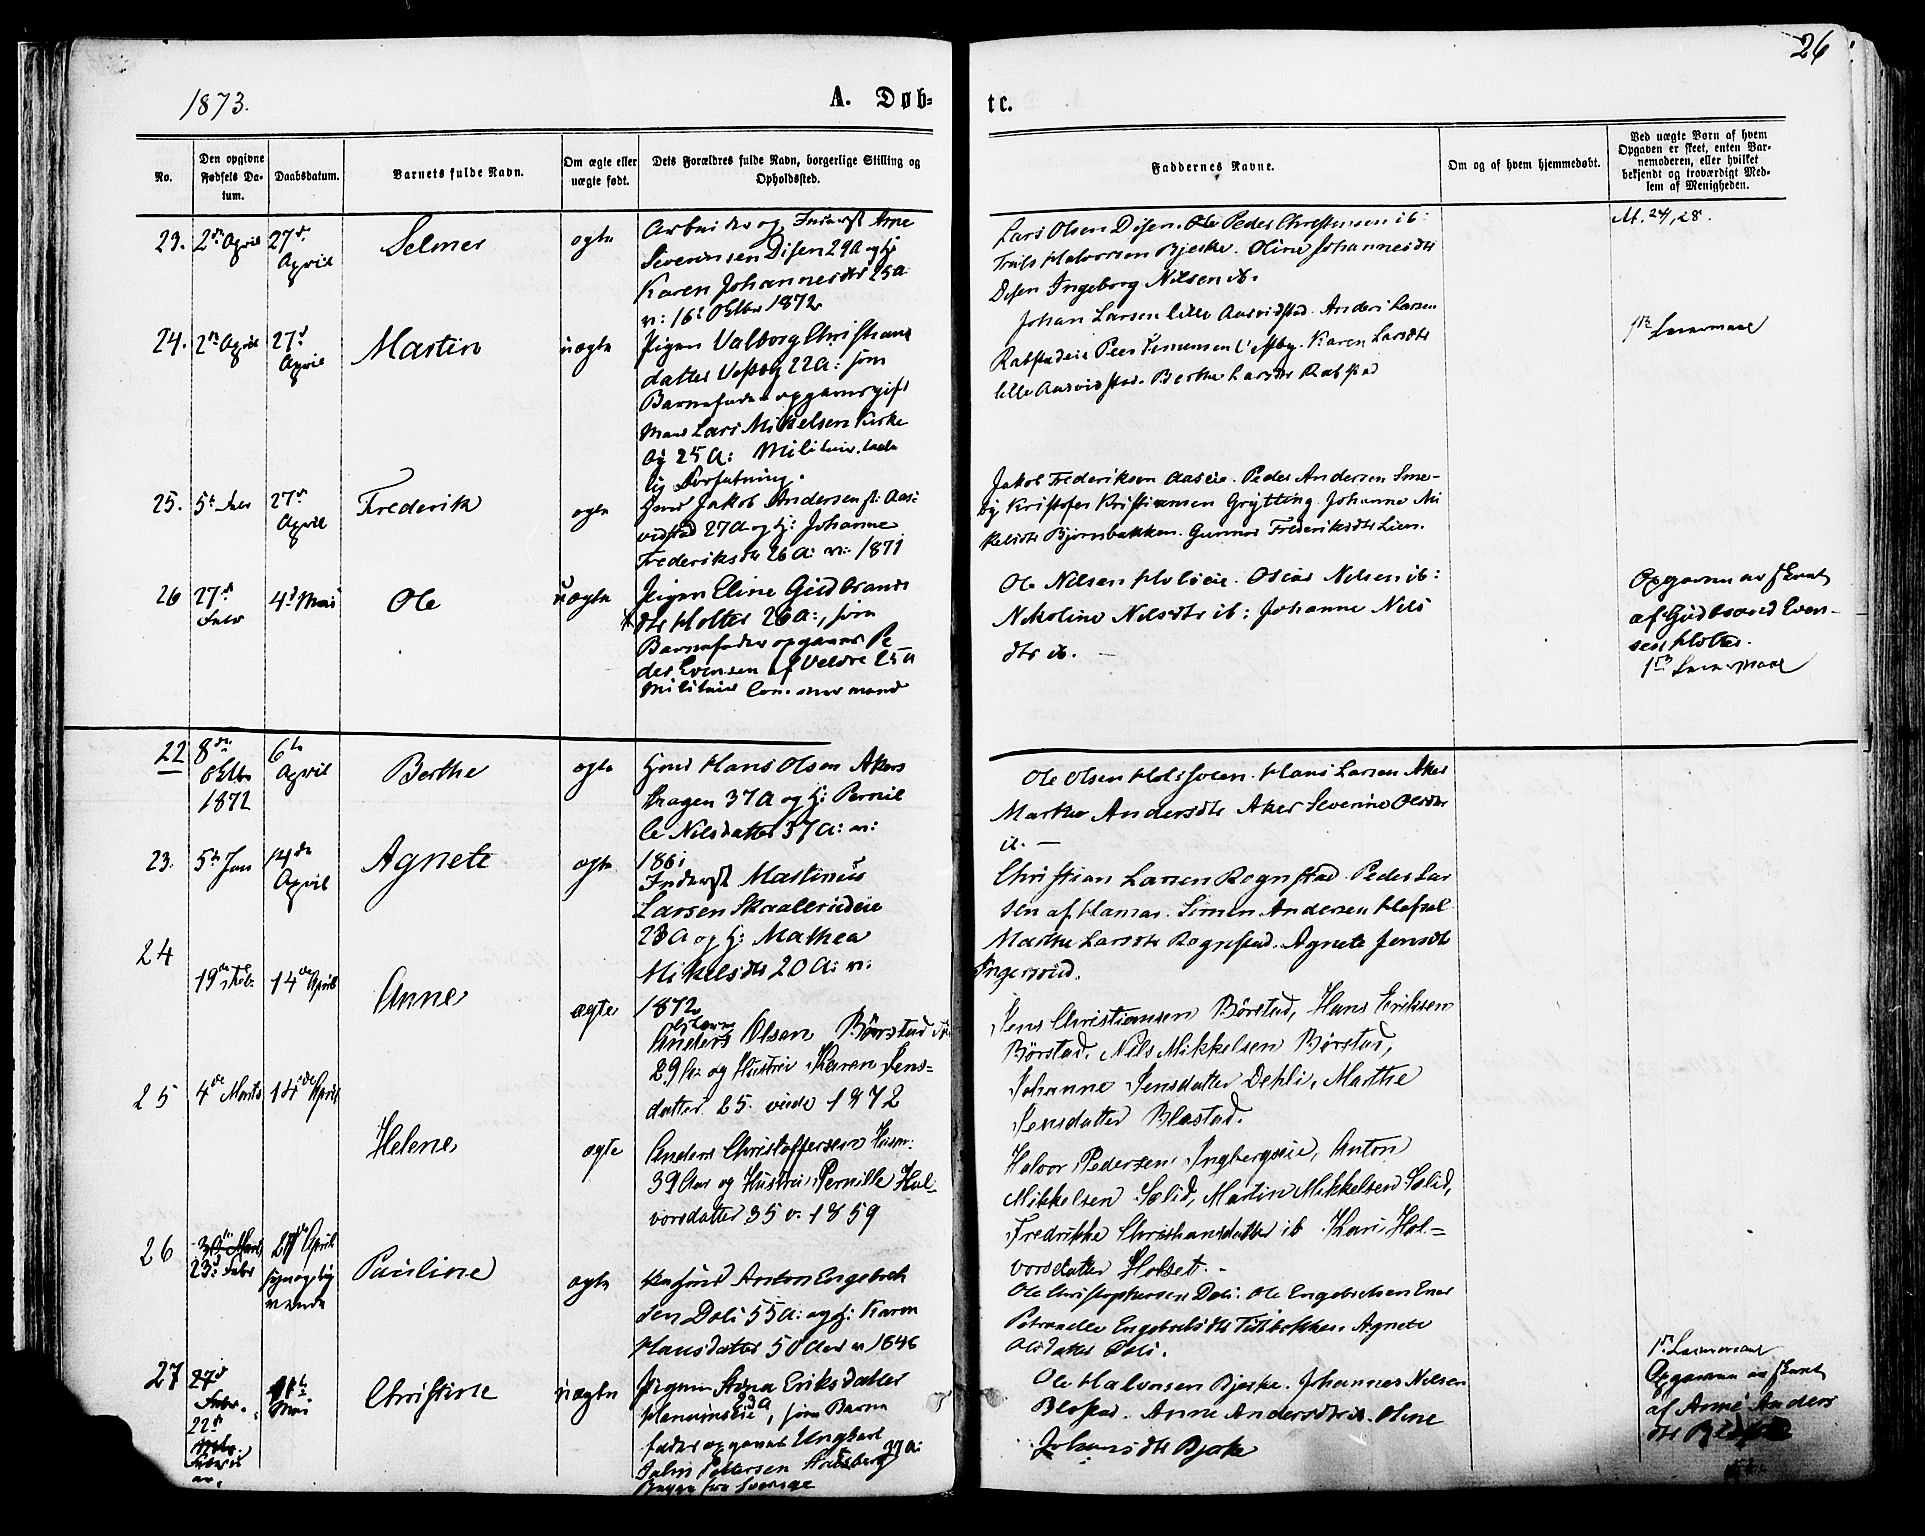 26
1873.
A. Døb-
te.
No.
Den opgivne Fødsels Da-tum.
Daabsdatum.
Barnets fulde Navn.
Om ægte eller uægte født.
Dets Forældres fulde Navn, borgerlige Stilling og Opholdssted.
Faddernes Navne.
Om og af hvem hjemmedøbt.
Ved uægte Børn af hvem Opgaven er skeet, enten Bar-nemoderen, eller hvilket bekjendt og troværdigt Med-lem af Menigheden.
23. 2den April 27de April
Selmer
ægte
Arbeider og Inderst Arne
Severinsen Disen 29A og H:
Karen Johannesdtr 25A
v: 16de Oktbr 1872
Lars Olsen Disen. Ole Peder Christensen ib:
Troils Halvorsen Bjerke. Oline Johannesdtr
Disen Ingeborg Nilsen ib.
24. 2den April 27de April
Martin
uægte
Pigen Valborg Christians
datter Vestby 22A: som
Barnefader opgaves gift
Mand Lars Mikelsen Kirke
by 25A: Militair
Johan Larsen lille Aarvidstad. Anders Larsen
Peer Simensen Vestby. Karen Larsdtr
lille Aasvidstad. Berthe Larsdtr Rabstad
1ste Leiermaal
25. 5te Febr 27de April
Frederik
ægte
Jakob Andersen
vidstad 27A og H: Johanne
Frederiksdtr 26A: v: 1871
Jakob Frederiksen Aaseie. Peder Andersen Sme-
by Kristofer Kristiansen Grytting. Johanne Mi
kelsdtr Bjørnbakken. Gunnor Frederiksdtr Lien.
26 27de Febr 4de Mai
Ole
uægte
Pigen Eline Gudbrands
dtr Holter 26A:, som
Barnefader opgaves Pe
der Evensen af Veldre 25A
Militair
Ole Nilsen Holseie. Oscar Nilsen ib:
Nikoline Nilsdtr ib: Johanne Nils
dtr ib. —
Opgaven av skeet
af Gudbrand Even-
sen Holter.
1ste Leiermaal
22 8de Oktbr 1872 6te April
Berthe
ægte
Hans Olsen Akers
hagen 37A og H: Pernil
le Nilsdatter 37A: v:
1861
Ole Olsen. Hans Larsen Aker
Marthe Andersdtr Aker Severine Olsdtr
ib. —
23. 5te Jan 14de April
Agnete
ægte
Inderst Martinus
Larsen
23A og H: Mathea
Mikelsdtr 20A: v:
1872
Christian Larsen Rognstad. Peder Lar
sen af Hamar. Simen Andersen
Marthe Larsdtr Rognstad. Agnete Jensdtr
24 19de Feb. 14de April
Anne
ægte
Anders Olsen Børstad
29 A: og Hustru Karen Jens-
datter 25. viede 1872
Jens Christiansen Børstad, Hans Eriksen
Børstad, Nils Mikkelsen Børstad,
Johanne Jensdatter Dehli, Marthe
Jensdatter Blæstad.
25 4de Marts 14de April
Helene
ægte
Anders Christoffersen Husm:
39 Aar og Hustru Pernille Hal-
vorsdatter 35 v. 1859
Halvor Pedersen Ingbergseie, Anton
Mikkelsen Sælid, Martin Mikkelsen Sælid,
Fredrikke Christiansdatter ib Kari Hal-
vorsdatter Holset. -
26 23de Febr April
Pauline
ægte
Anton Engebret
sen Dæli 55A: og H: Karen
Hansdatter 50 Aar v 1846
Ole Christophersen Dæli. Ole Engebretsen Ener
Petronelle Engebretsdtr Agnete
Olsdatter Dæli.
27 22de Februar Mai
Christine
uægte
Pigen Stina Eriksdatter
som Barne
fader opgaves Ungkarl
Johan Pettersen 27A:
fra Sverige
Ole Halvorsen Bjerke. Johannes Nilsen
Blæstad. Anne Andersdtr ib. Oline
Johansdtr Bjerke
1ste Leiermaal
Opgaven av skeet
af Arne Anders